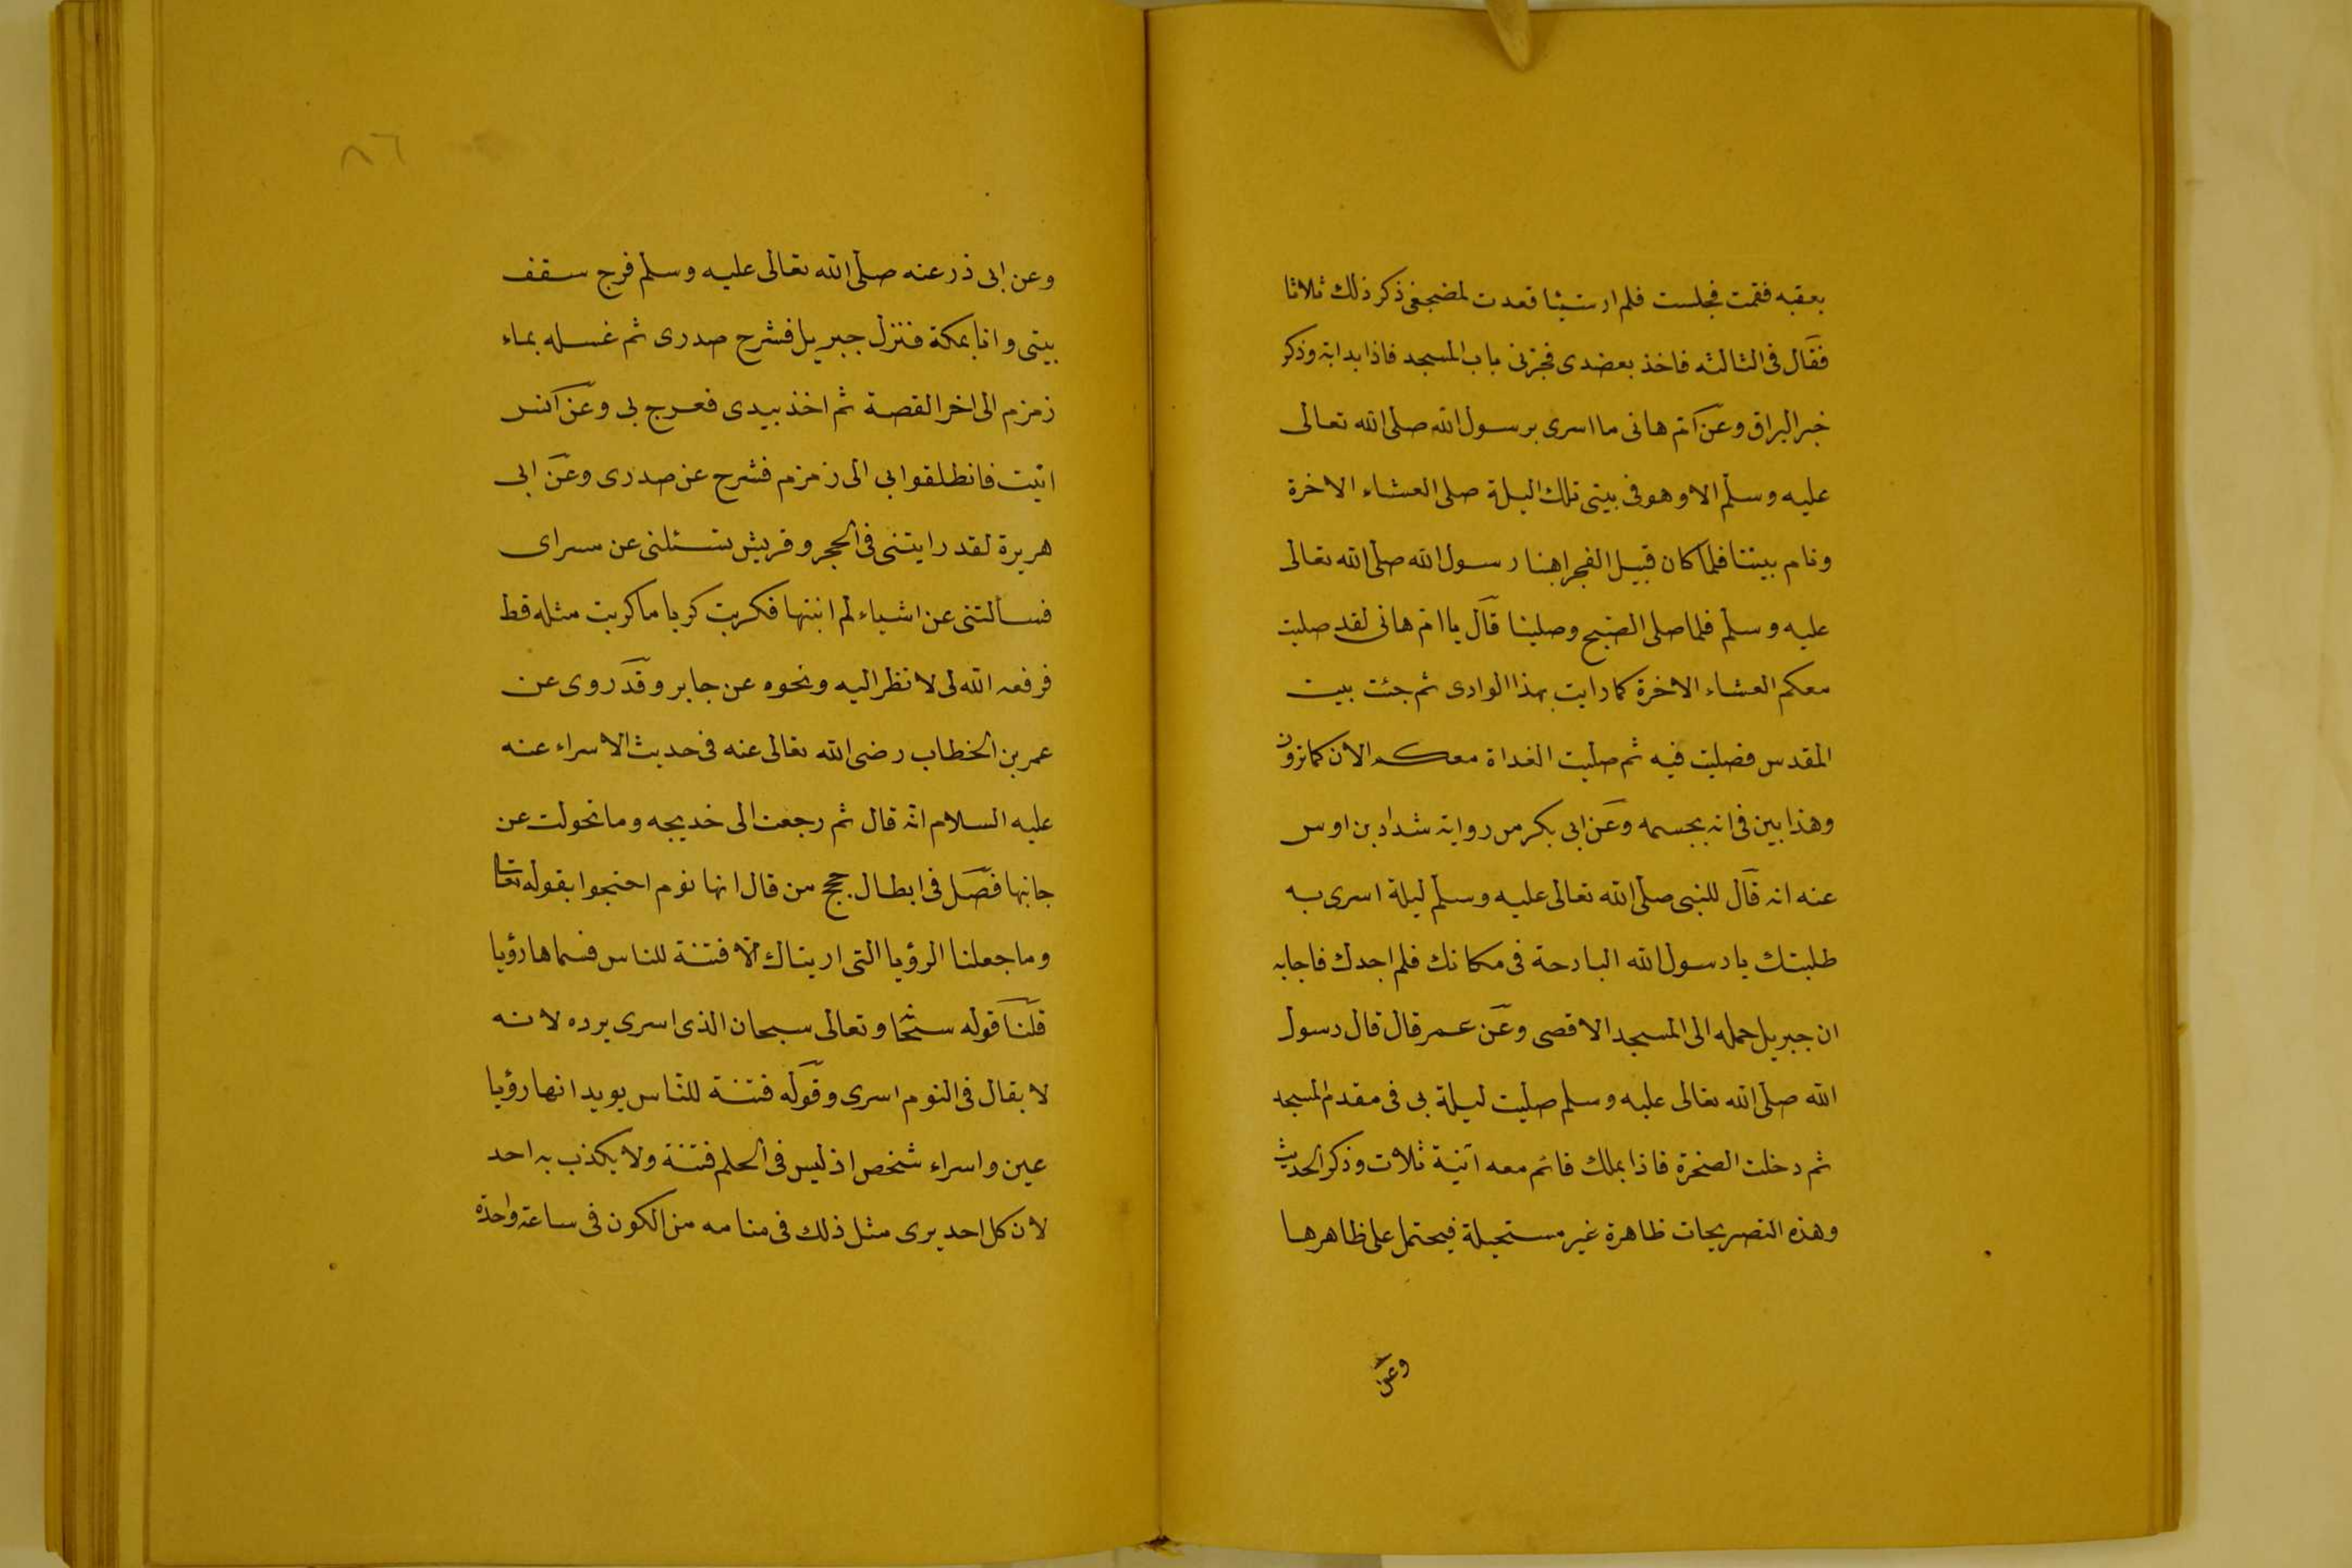 بعقبه فقمت فجلست فلم ار شيئا فعدت لمضجعى ذكر ذلك ثلاثا
فقال فى الثالثه فاخذ بعضدى فجرنى باب المسجد فاذا بدابة وذكر
خبر البراق وعن ام هانى ما اسرى برسول الله صلى الله تعالى
عليه وسلم الا وهو فى بيتى تلك اليلة صلى العشاء الاخرة
ونام بيننا فلما كان قبيل الفجر اهبنا رسول الله صلى الله تعالى
عليه وسلم فلما صلى الصبح وصلينا قال يا ام هانى لقد صليت
معكم العشاء الاخرة كما رايت بهذا الوادى ثم جئت بيت
المقدس فصليت فيه ثم صليت الغداة معكم الان كما ترون
وهذا بين فى انه بجسمه وعن ابى بكر من رواية شداد بن اوس
عنه انه قال للنبى صلى الله تعالى عليه وسلم ليلة اسرى به
طلبتك يا رسول الله البارحة فى مكانك فلم اجدك فاجابه
ان جبريل حمله الى المسجد الاقصى وعن عمر قال قال رسول
الله صلى الله تعالى عليه وسلم صليت ليلة بى فى مقدم المسجد
ثم دخلت الصخرة فاذا بملك قائم معه آنية ثلاث وذكر الحديث
وهذه التصريحات ظاهرة غير مستحيلة فيحتمل على ظاهرها
وعن
٨٦
وعن ابى ذر عنه صلى الله تعالى عليه وسلم فرج سقف
بيتى وانا بمكة فنزل جبريل فشرح صدرى ثم غسله بماء
زمزم الى اخر القصة ثم اخذ بيدى فعرج بى وعن انس
اتيت فانطلقوا بى الى زمزم فشرح عن صدرى وعن ابى
هريرة لقد رايتنى فى الحجر وقريش تسئلنى عن سراى
فسألتنى عن اشياء لم اثبتها فكربت كربا ما كربت مثله قط
فرفعه الله لى لا نظر اليه ونحوه عن جابر وقد روى عن
عمر بن الخطاب رضى الله تعالى عنه فى حديث الاسراء عنه
عليه السلام انه قال ثم رجعت الى خديجه وما تحولت عن
جانبها فصل فى ابطال حجج من قال انها نوم احتجوا بقوله تعالى
وما جعلنا الرؤيا التى اريناك الا فتنة للناس فسماها رؤيا
قلنا قوله سبحانه وتعالى سبحان الذى اسرى يرده لانه
لا يقال فى النوم اسرى وقوله فتنة للناس يويد انها رؤيا
عين واسراء شخص اذ ليس فى الحلم فتنة ولا يكذب به احد
لان كل احد يرى مثل ذلك فى منامه من الكون فى ساعة واحدة